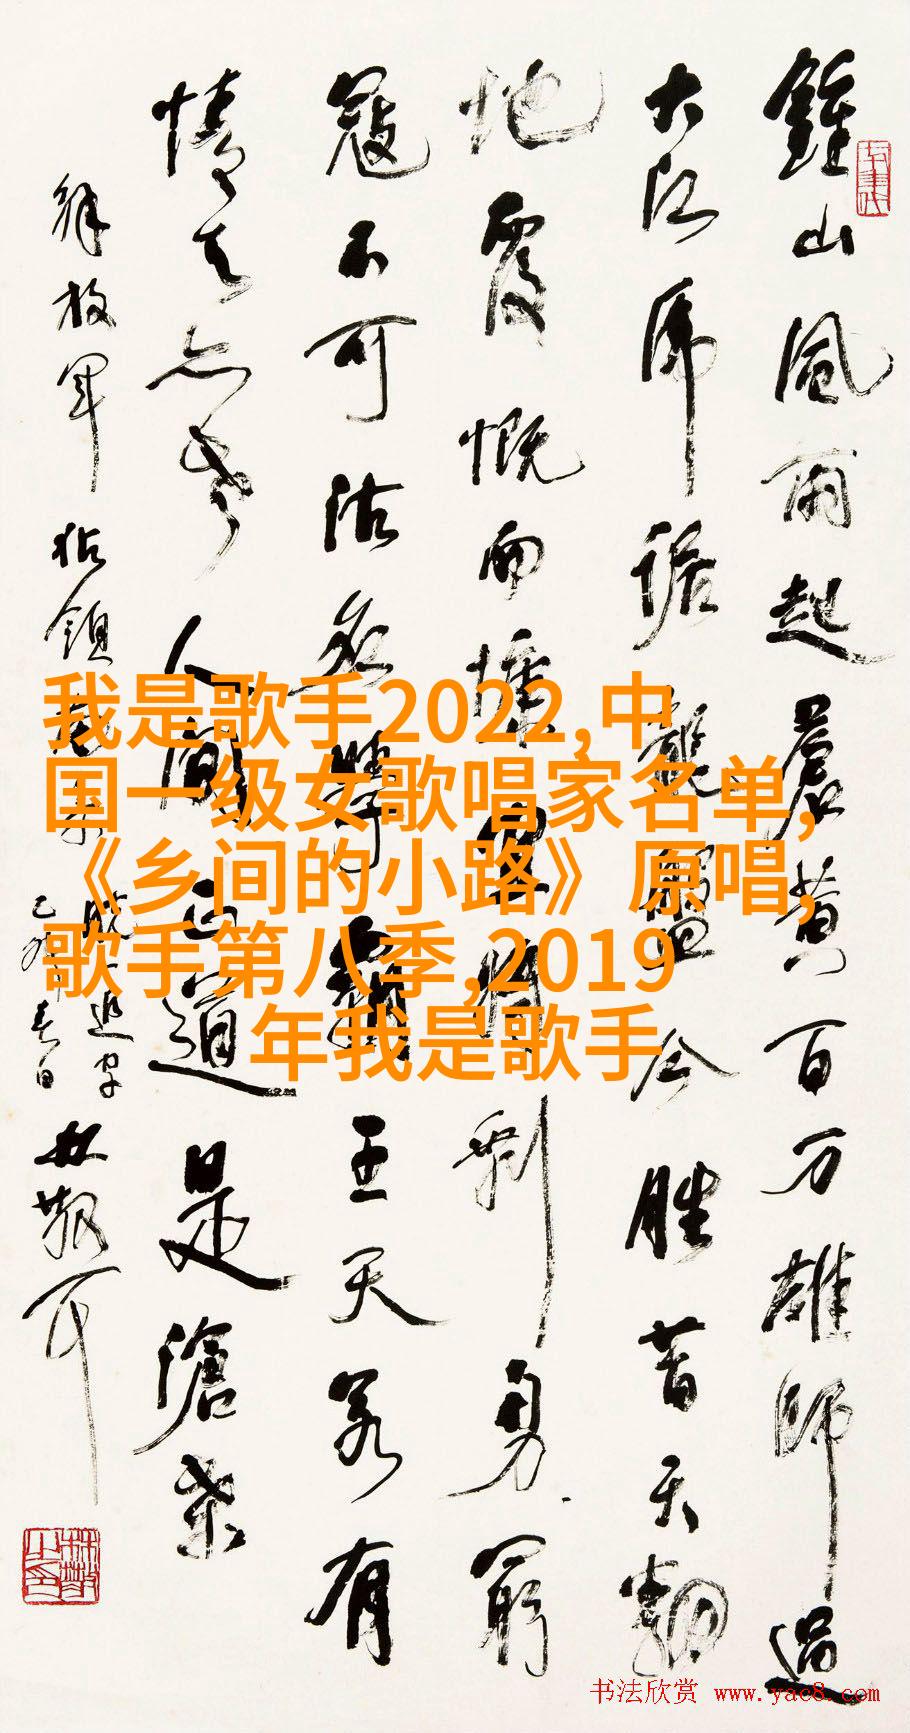 鍾山風雨起蒼黄百万雄師過
大江虎踞龍盤今勝昔天翻
地覆慨而慷宜將剩勇窮
寇不可沽名學霸王天若有
情天亦老人间正道是滄桑
解放軍佔領南京
春日
林散耳
我是歌手2022,中
国一级女歌唱家名单,
《乡间的小路》原唱,
歌手第八季,2019
年我是歌手
书法欣赏 www.yac8.com